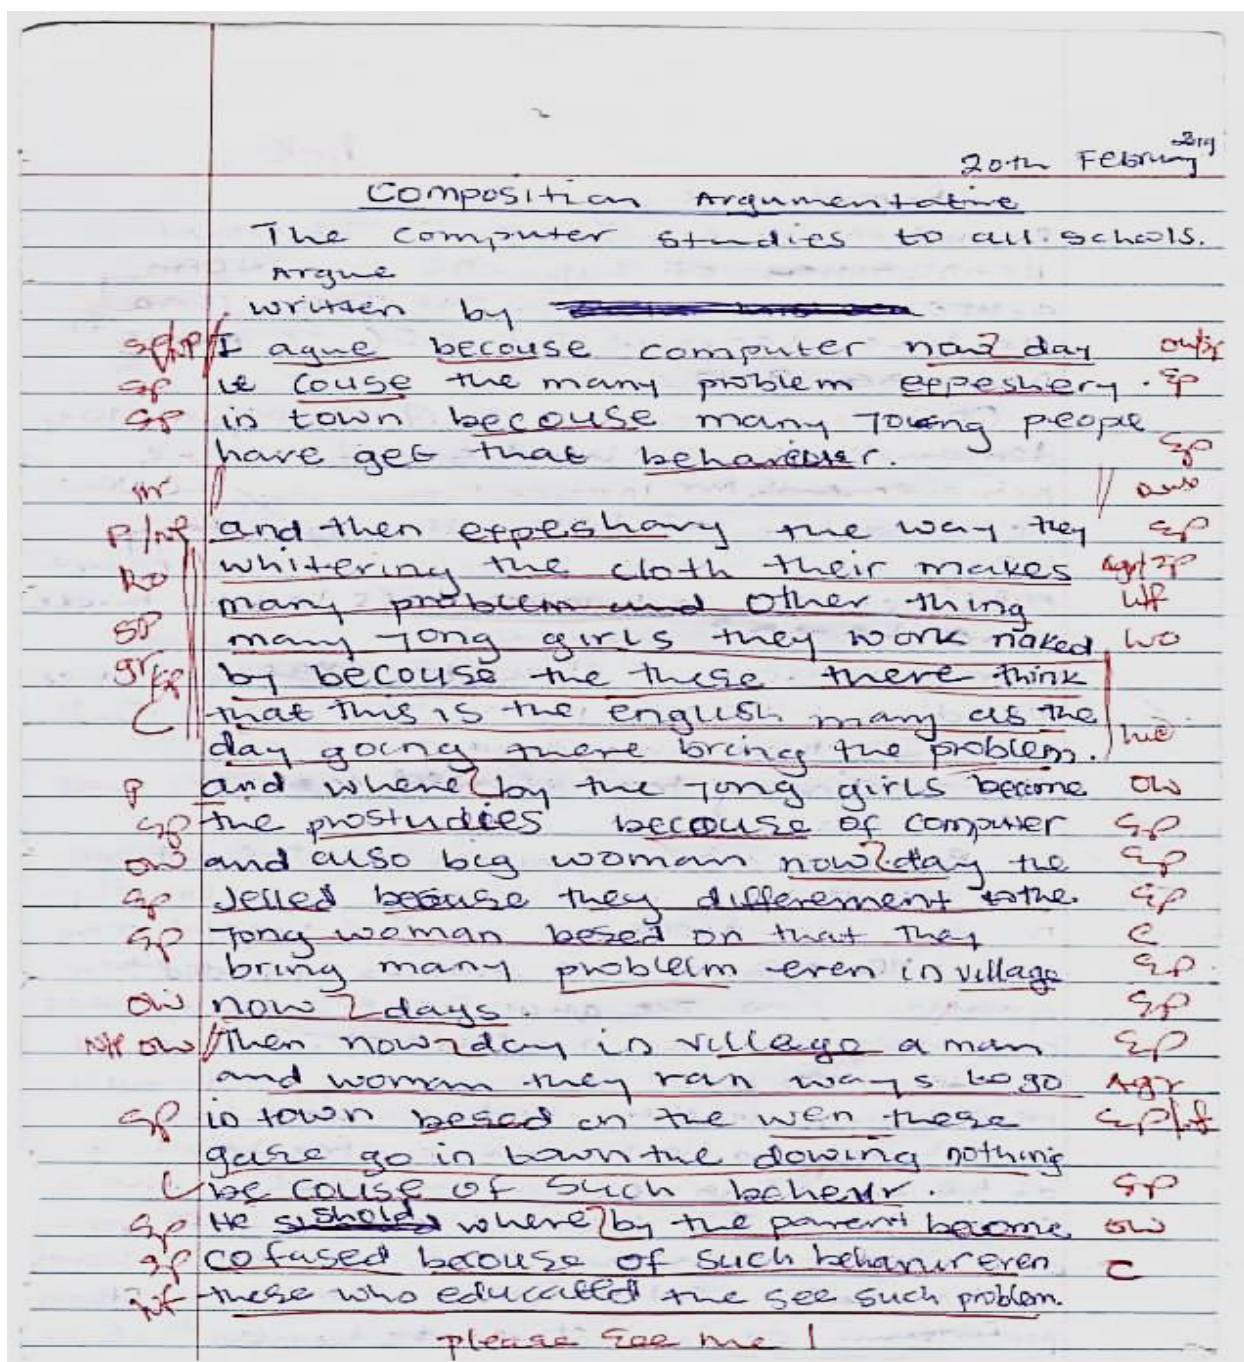 20th February
Composition Argumentative
The computer studies to all schools.
Argue
written by
Sp/NP I ague becouse computer now day ow/sp
sp it couse the many problem eepeshery. Sp
Sp in town becouse many young people
have get that behaviour. Sp
P/NP and then eepeshary the way they Sp
whitering the cloth their makes Agr/Sp
many problem and other thing WF
SP many yong girls they work naked wo
by becouse the these there think
that this is the english many as the
day going there bring the problem.
P and where by the yong girls become ow
Sp the prostudies becouse of computer Sp
ow and also big woman now day the Sp
Sp Jelled becouse they differement to the Sp
Sp yong woman besed on that They C
bring many problem even in village Sp
ow now days. Sp
NP ow Then now day in village a man Sp
and woman they ran ways to go Agr
Sp in town besed on the wen these Sp/wf
go in town the dowing nothing
be couse of such behevir. Sp
Sp He where by the parent become ow
Sp cofused becouse of such behavur even C
these who educatted the see such problem.
please see me!